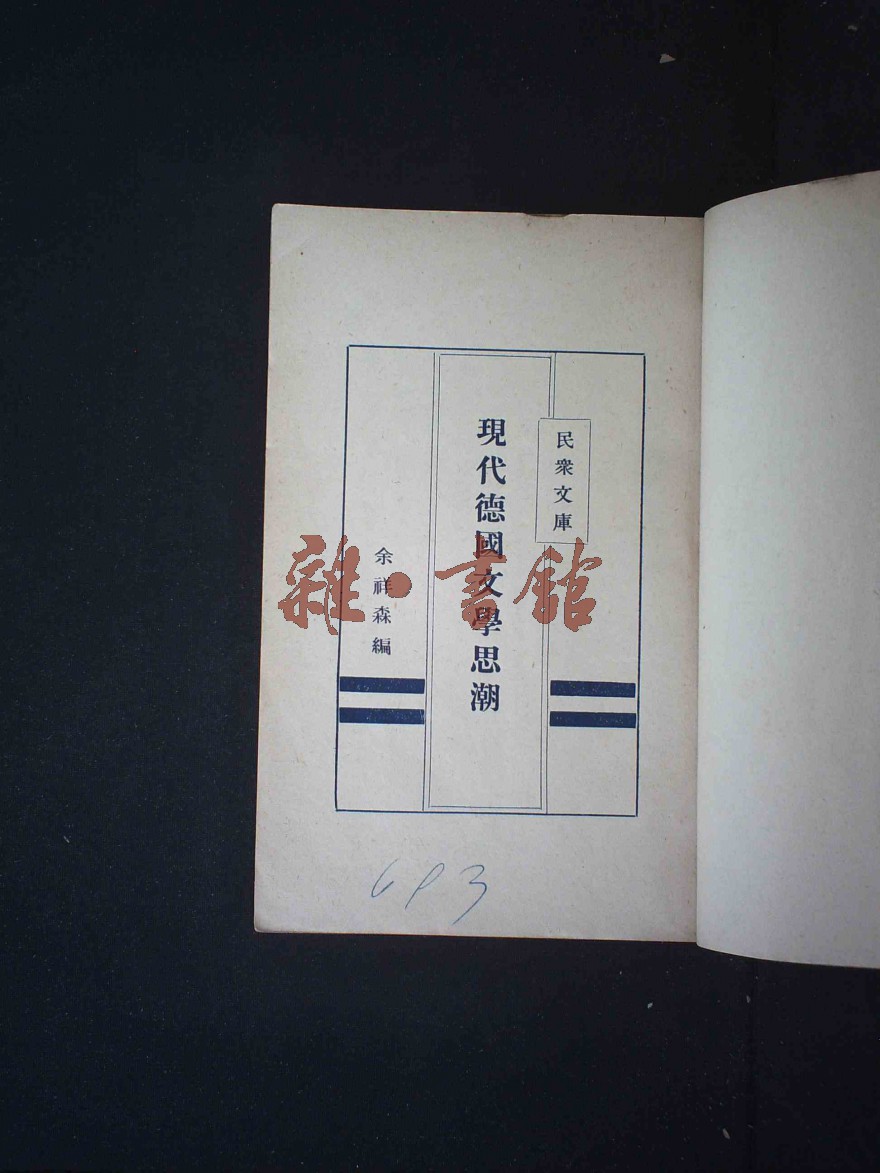 民衆文庫
現代德國文學思潮
余祥森編
雜·書館
693